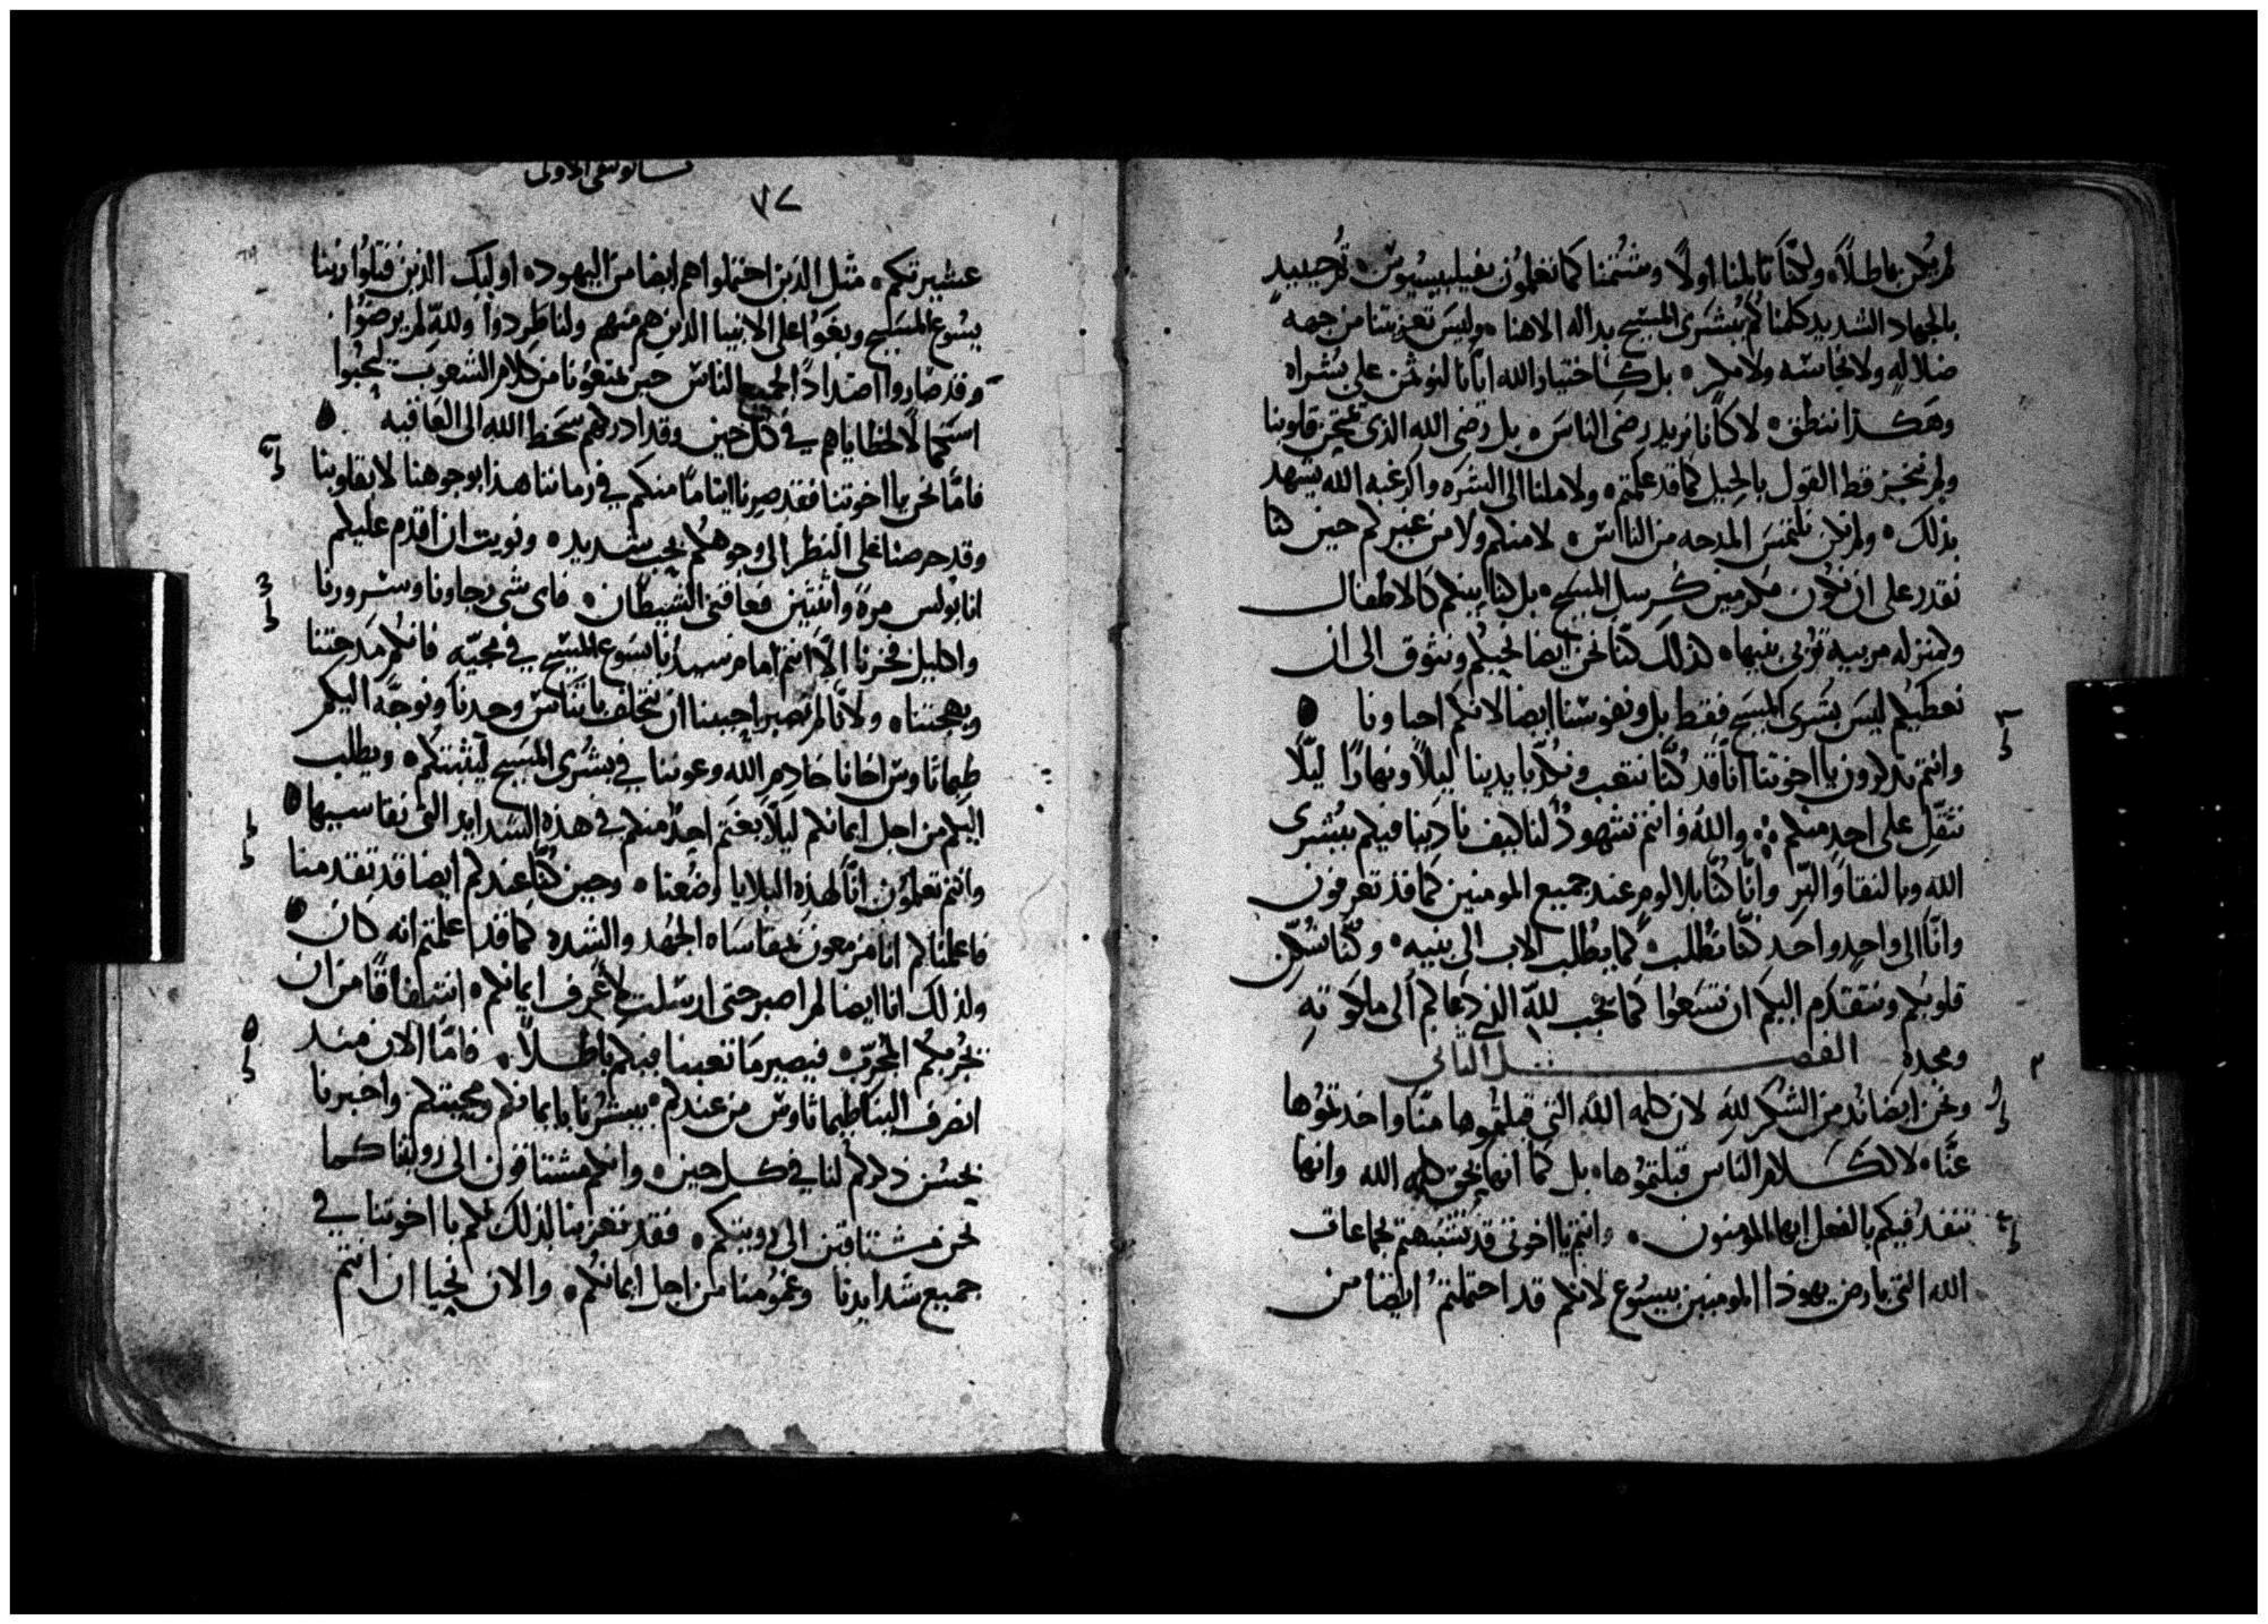 لم يكن باطلاً ولكنّا تالمنا اولاً وشُتمنا كما تعلمون بفيلبسيوس ثم حينيذٍ
بالجهاد الشديد كلمناكم ببُشرى المسيح بدالة الاهنا وليس تعزيتنا من جهة
ضلالهٍ ولا نجاسه ولا مكر بل كاختيار الله ايّانا لنوتمن على بُشراه
وهكذا ننطق لا كانّا نريد رضى الناس بل رضى الله الذى يمتحن قلوبنا
ولم نتخذ قط القول بالحيل كما قد علمتم ولا ملنا الى الشره والرغبه الله يشهد
بذلك ولم نكن نلتمس المدحه من الناس لا منكم ولا من غيركم حين كنا
نقدر على ان نكون مكرمين كرسل المسيح بل كنا بينكم كالاطفال
وبمنزلة مربيه تربى بنيها كذلك كنّا نحن ايضا نحبكم ونتوق الى ان
نعطيكم ليس بُشرى المسيح فقط بل ونفوسنا ايضا لانكم احباونا
وانتم تذكرون يا اخوتنا انّا قد كُنّا نتعب ونكدّ بايدينا ليلاً ونهارًا ليلّا
نثقّل على احدٍ منكم والله وانتم شهودٌ لنا كيف نادينا فيكم ببُشرى
الله وبالنقا والبرّ وانّا كنّا بلا لومٍ عند جميع المومنين كما قد تعرفون
وانّا الى واحدٍ واحد كنّا نطلب كما يطلب الاب الى بنيه وكنّا نسكّن
قلوبكم ونتقدّم اليكم ان تسعوا كما يجب لله الذى دعاكم الى ملكوته
ومجده الفصل الثانى
ونحن ايضا نُدمن الشكر لله لان كلمه الله التى قبلتموها منّا واخذتموها
عنّا لا ككلام الناس قبلتموها بل كما انها بحق كلمه الله وانها
تنفذ فيكم بالفعل ايها المومنون وانتم يا اخوتى قد تشبّهتم بجماعات
الله التى بارض يهوذا المومنين بيسوع لانكم قد احتملتم ايضا من
تسالونيقى الاولى
٧٨
عشيرتكم مثل الذين احتملوا هم ايضا من اليهود اوليك الذين قتلوا ربنا
يسوع المسيح وبغوا على الانبيا الذين هم منهم ولنا طردوا ولله لم يرضوا
وقد صاروا اضدادًا لجميع الناس حين يمنعونا من كلام الشعوب ليحيوا
استكمالًا لخطاياهم في كل حين وقد ادركهم سخط الله الى العاقبه
فامّا نحن يا اخوتنا فقد صرنا ايتامًا منكم في زماننا هذا بوجوهنا لا بقلوبنا
وقد حرصنا على النظر الى وجوهكم بحب شديد ونويت ان اقدم عليكم
انا بولس مرة واثنتين فعاقنى الشيطان فاى شى رجاونا وسرورنا
واكليل فخرنا الّا انتم امام سيدنا يسوع المسيح في مجيّه فانكم مدحتنا
وبهجتنا ولانّا لم نصبر احببنا ان نتخلف باثيناس وحدنا ونوجّه اليكم
طيماثاوس اخانا خادم الله وعوننا في بشرى المسيح ليثبتكم ويطلب
اليكم من اجل ايمانكم ليلّا يغتم احدٌ منكم في هذه الشدايد التى نقاسيها
وانتم تعلمون انّا لهذه البلايا وضُعنا وحين كنّا عندكم ايضا قد تقدمنا
فاعلمناكم انا مزمعون بمقاساه الجهد والشده كما قد علمتم انه كان
ولذلك انا ايضا لم اصبر حتى ارسلت لاعرف ايمانكم اشفاقًا من ان
يجربكم المُجرّب فيصير ما تعبنا فيكم باطلاً فامّا الان منذ
انصرف الينا طيماثاوس من عندكم يبشرنا بايمانكم ومحبتكم واخبرنا
بحسن ذكركم لنا في كل حين وانكم مشتاقون الى رويتنا كما
نحن مشتاقين الى رويتكم فقد تعزينا لذلك بكم يا اخوتنا في
جميع شدايدنا وغمومنا من اجل ايمانكم والان نحيا ان انتم